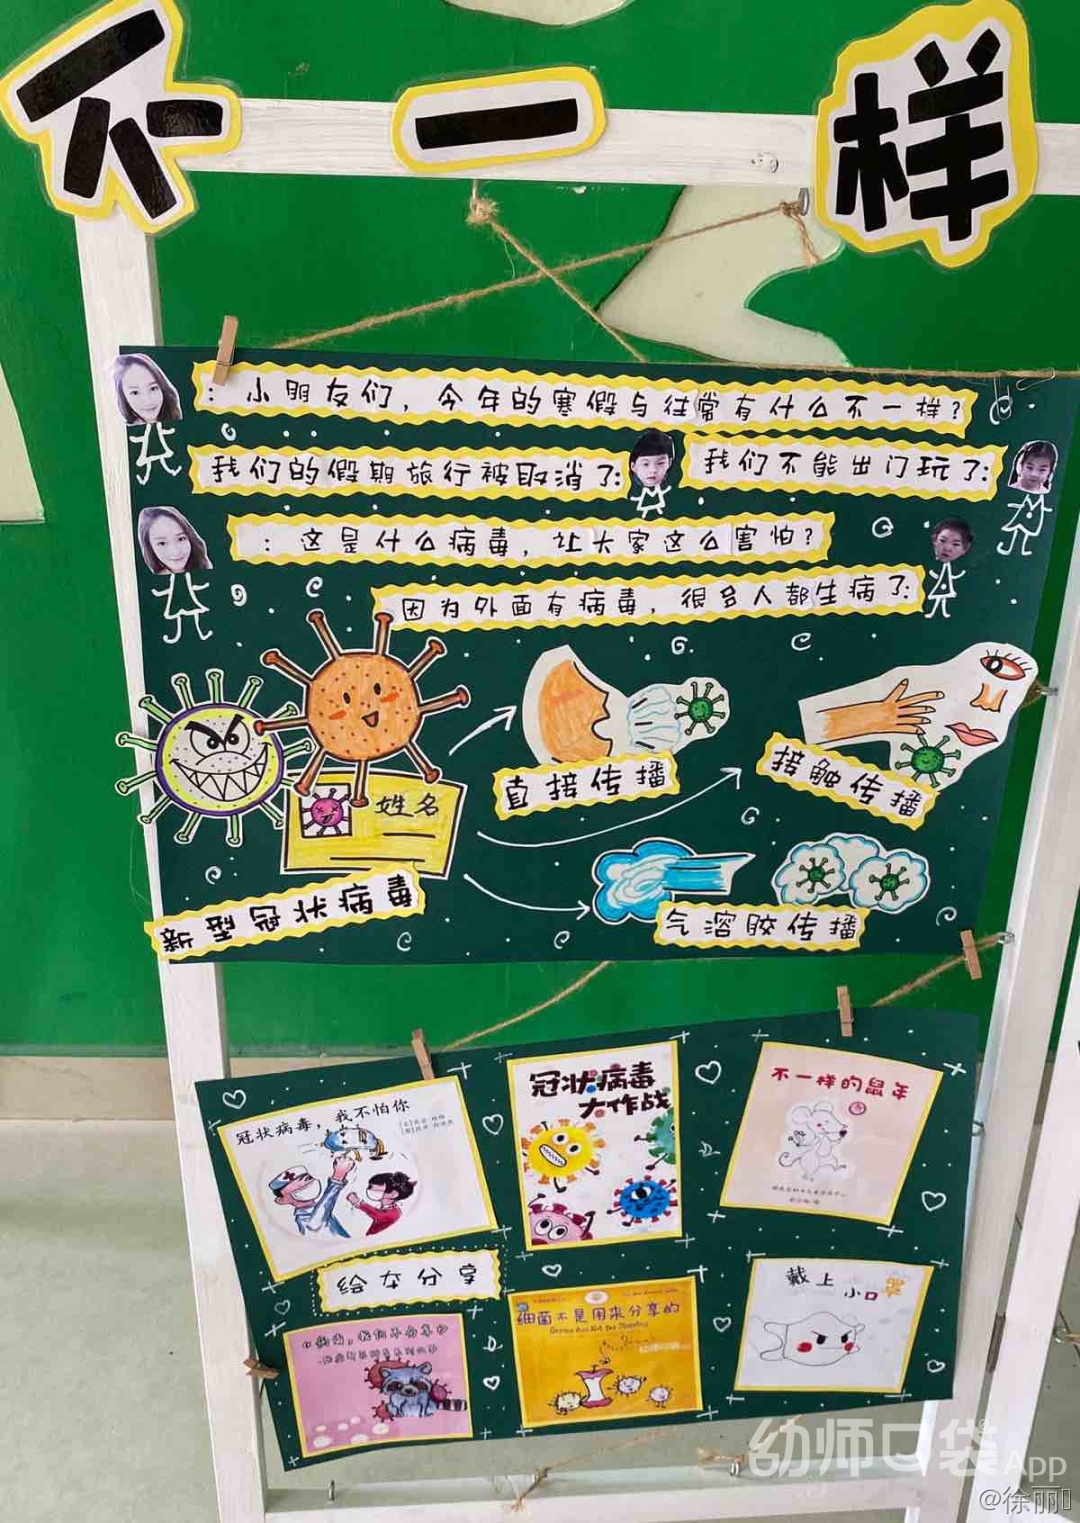 不一样
：小朋友们，今年的寒假与往常有什么不一样？
我们的假期旅行被取消了：
我们不能出门玩了：
：这是什么病毒，让大家这么害怕？
因为外面有病毒，很多人都生病了：
直接传播
接触传播
姓名
新型冠状病毒
气溶胶传播
冠状病毒，我不怕你
冠状病毒
大作战
不一样的鼠年
绘本分享
病毒，我们不分享
细菌不是用来分享的
Germs Are Not for Sharing
戴上小口罩
幼师口袋App
@徐丽